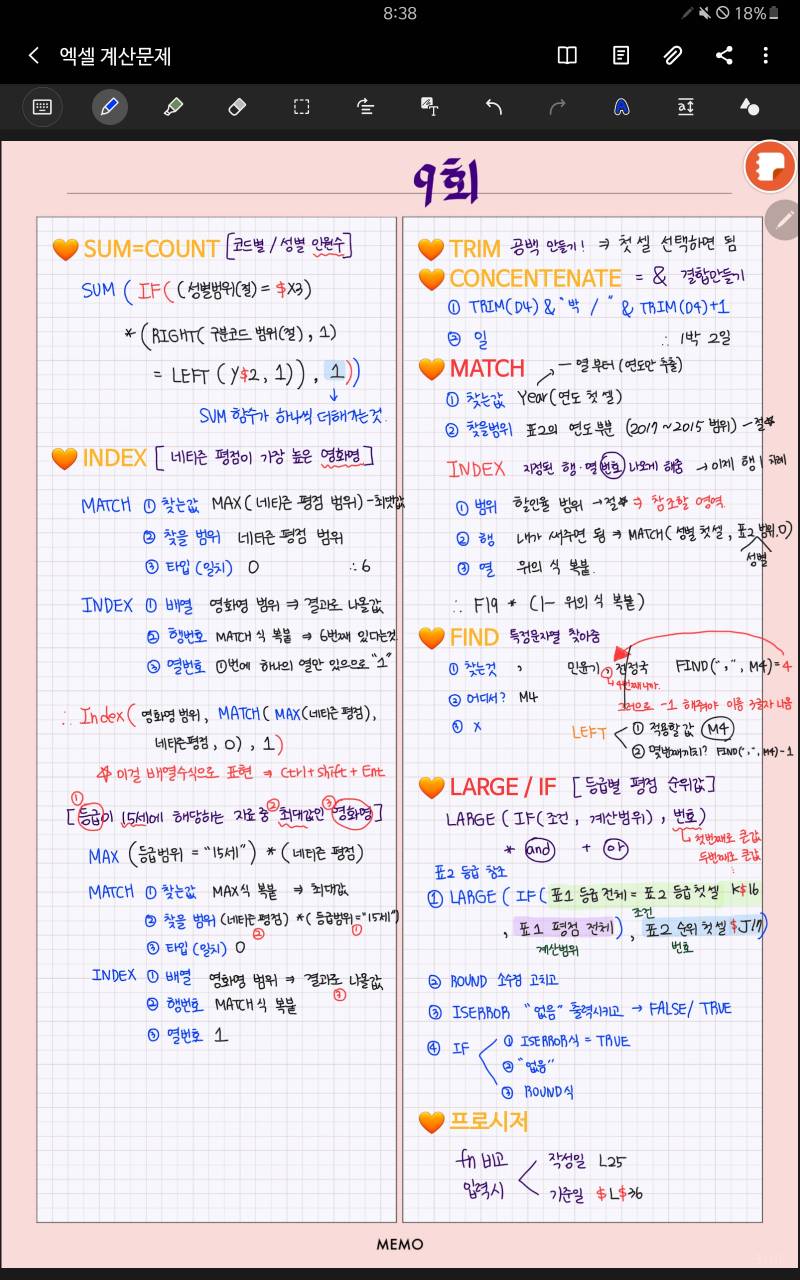 8:38
18%
엑셀 계산문제
9회
🧡 SUM=COUNT [코드별 / 성별 인원수]
SUM ( IF( (성별범위(절) = $X3)
* (RIGHT( 구분코드 범위(절) , 1)
= LEFT ( Y$2, 1)) , 1))
↓
SUM 함수가 하나씩 더해주는것.
🧡 INDEX [ 네티즌 평점이 가장 높은 영화명 ]
MATCH ① 찾는값 MAX( 네티즌 평점 범위) - 최댓값
② 찾을 범위 네티즌 평점 범위
③ 타입 (일치) 0 ∴ 6
INDEX ① 배열 영화명 범위 ⇒ 결과로 나올값
② 행번호 MATCH 식 복붙 ⇒ 6번째 있다는것
③ 열번호 ①번에 하나의 열만 있으므로 "1"
∴ Index( 영화명 범위, MATCH( MAX(네티즌 평점),
네티즌 평점, 0) , 1)
☆ 이걸 배열수식으로 표현 ⇒ Ctrl + Shift + Ent
① ② ③
[ 등급이 15세에 해당하는 자료 중 최대값인 영화명 ]
MAX (등급범위 = "15세") * ( 네티즌 평점)
MATCH ① 찾는값 MAX식 복붙 ⇒ 최대값
② 찾을 범위 (네티즌 평점) * ( 등급범위="15세")
② ①
③ 타입(일치) 0
INDEX ① 배열 영화명 범위 ⇒ 결과로 나올값
③
② 행번호 MATCH 식 복붙
③ 열번호 1
🧡 TRIM 공백 만들기! ⇒ 첫 셀 선택하면 됨
🧡 CONCENTENATE = & 결합만들기
① TRIM(D4) & "박 / " & TRIM(D4)+1
② 일 ∴ 1박 2일
🧡 MATCH → 一 열부터 (연도만 추출)
① 찾는값 Year( 연도 첫 셀)
② 찾을범위 표2의 연도 부분 (2017 ~ 2015 범위) - 절☆
INDEX 지정된 행·열 번호 나오게 해줌 → 이제 행 | 차례
① 범위 할인율 범위 → 절☆ ⇒ 참조할 영역
② 행 내가 써주면 됨 ⇒ MATCH( 성별 첫셀, 표2 범위, 0)
성별
③ 열 위의 식 복붙.
∴ F19 * (1- 위의 식 복붙)
🧡 FIND 특정문자열 찾아줌
① 찾는것 , 민윤기, 전정국 FIND(",", M4) = 4
↳ 4번째니까.
② 어디서? M4 그러므로 -1 해줘야 이름 3글자 나옴
③ X LEFT < ① 적용할 값 M4
② 몇번째까지? FIND(",", M4)-1
🧡 LARGE / IF [ 등급별 평점 순위값 ]
LARGE ( IF( 조건 , 계산범위) , 번호)
* and + or
↳ 첫번째로 큰값
두번째로 큰값
⋮
표2 등급 참조
① LARGE ( IF( 표1 등급 전체 = 표2 등급 첫셀 K$16
조건
, 표1 평점 전체) , 표2 순위 첫 셀 $J17)
계산범위 번호
② ROUND 소수점 고치고
③ ISERROR "없음" 출력시키고 → FALSE/ TRUE
④ IF < ① ISERROR식 = TRUE
② "없음"
③ ROUND식
🧡 프로시저
fn 비고 < 작성일 L25
입력시 기준일 $L$36
MEMO